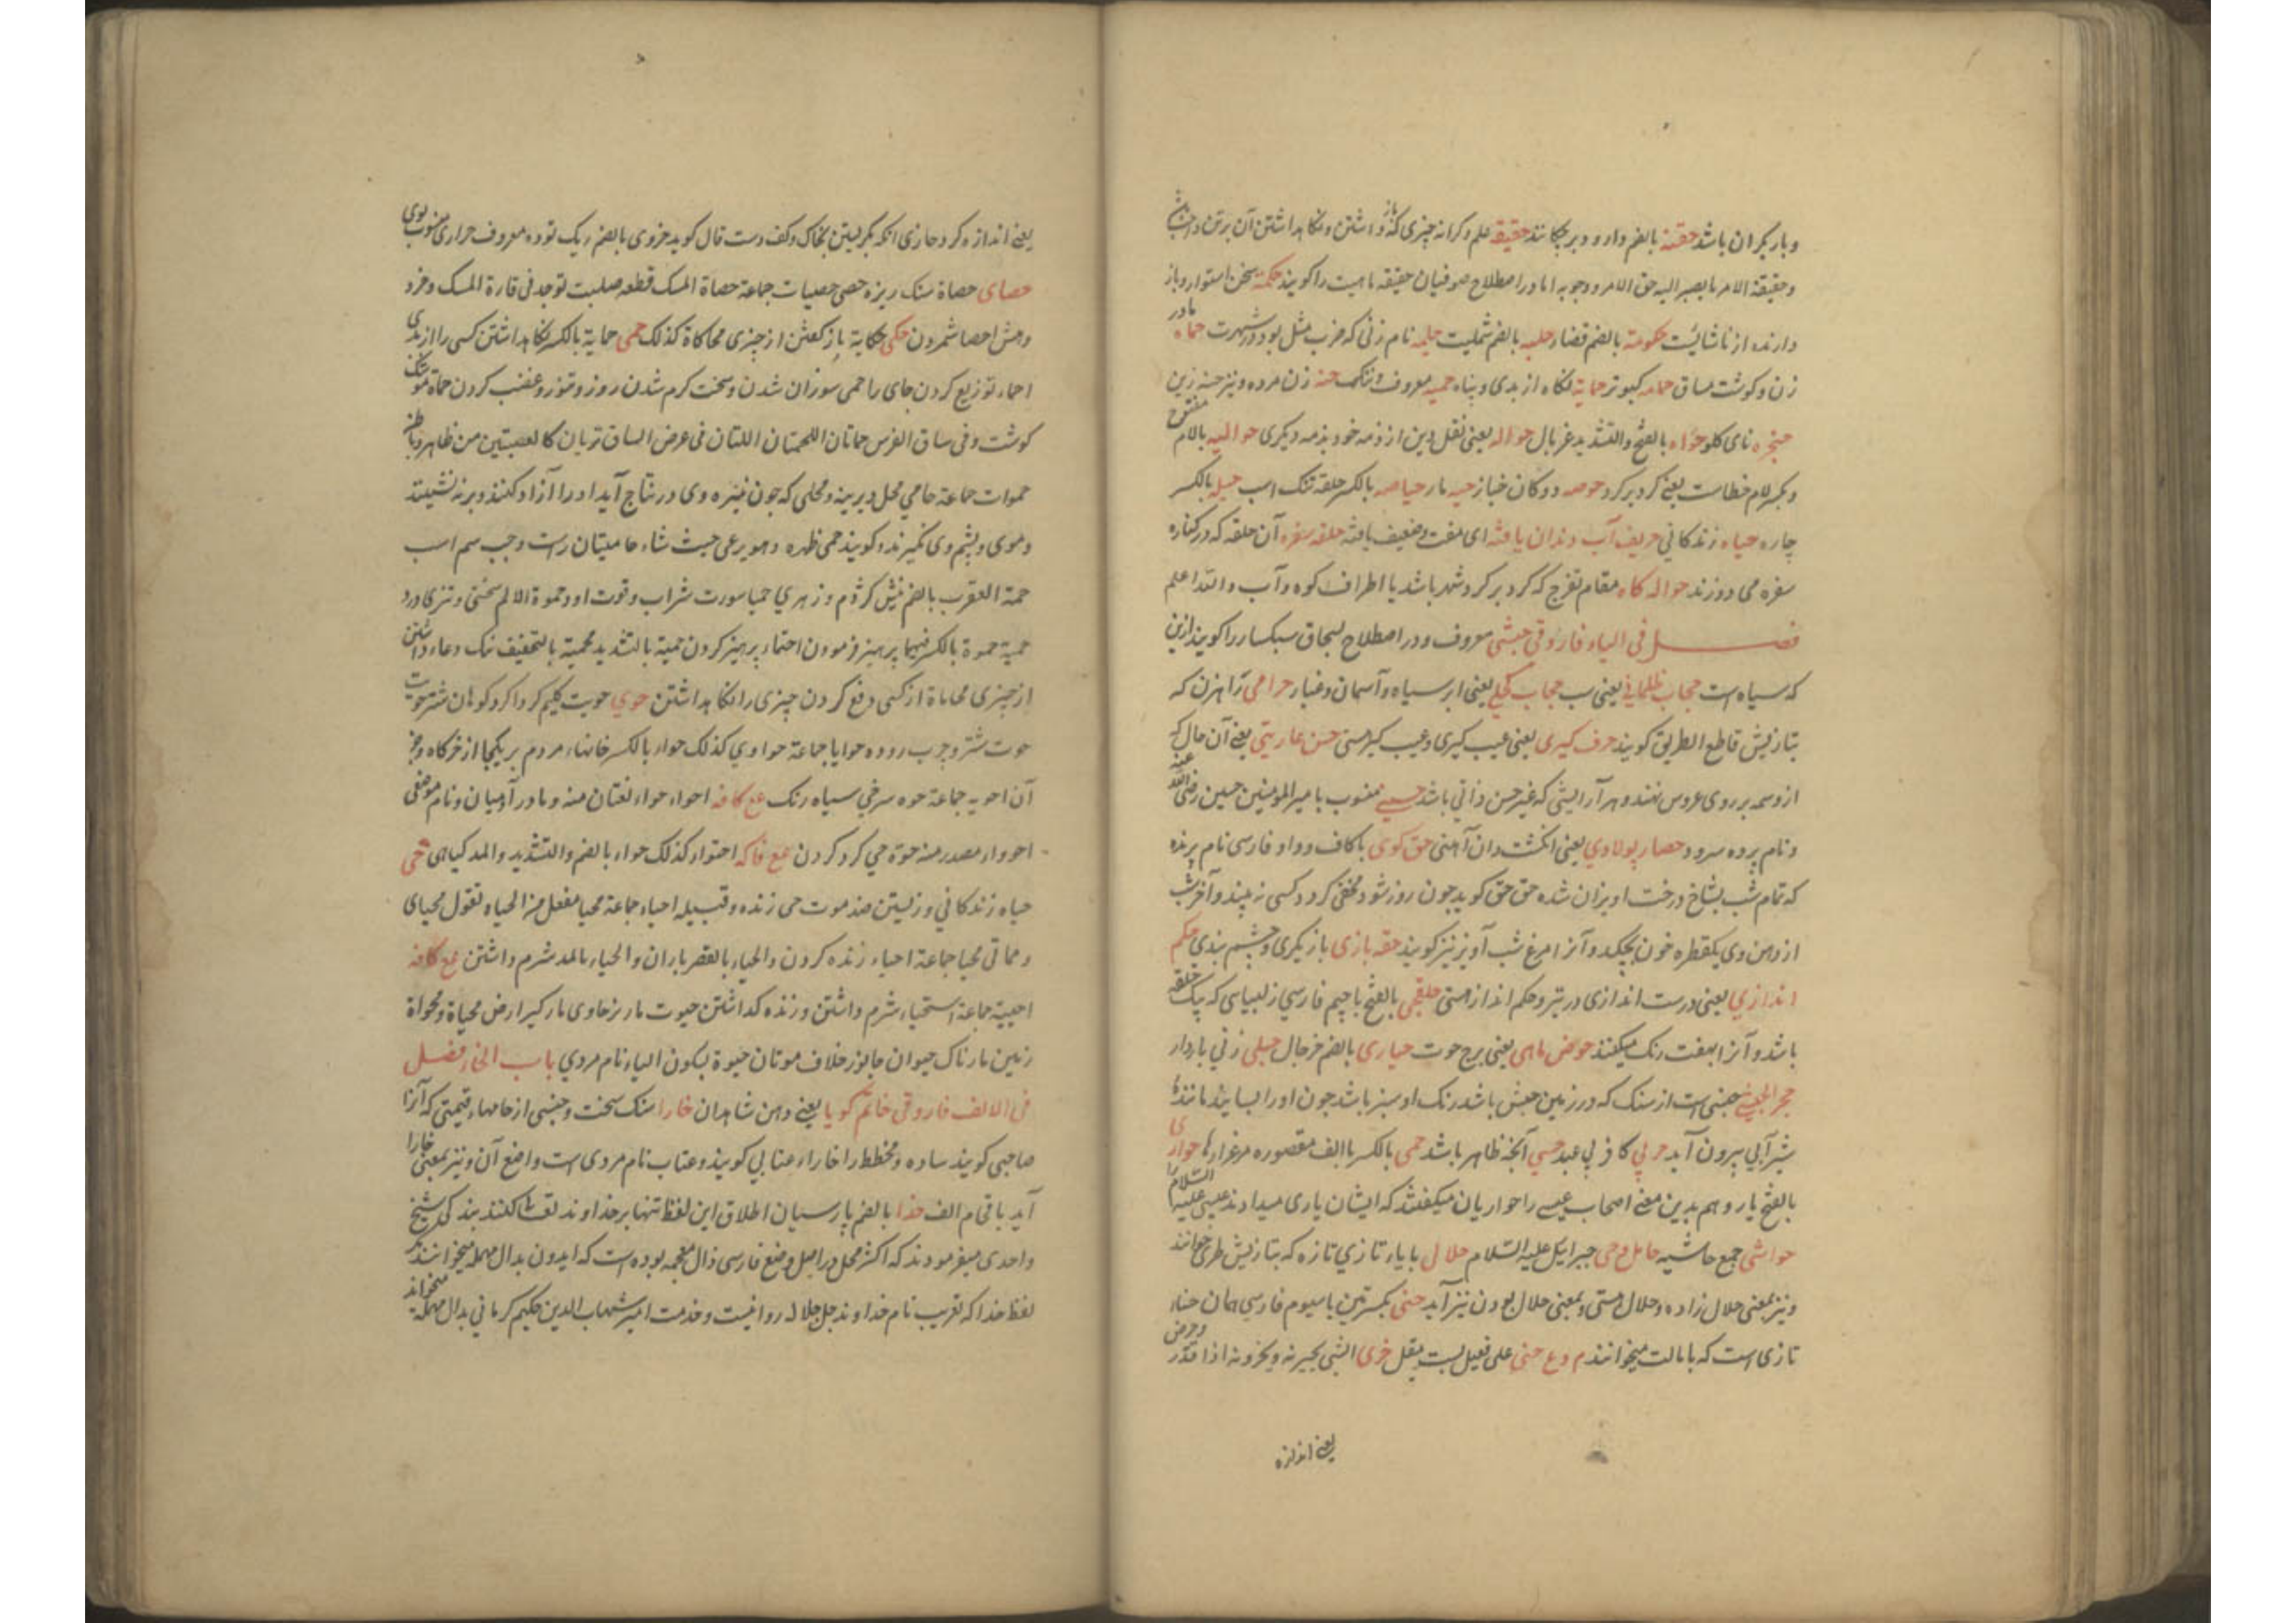 و بار بکران باشد حقنه بالضم دارو دبر چکانند حقیقه علم و کرانه چیزی که واداشتن و نکاهداشتن آن برتن واجب
و حقیقة الامر ما یصیر الیه حق الامر و وجوبه اما در اصطلاح صوفیان حقیقه ماهیت را کویند حکمة سخن استوار و باز
دارنده از ناشایست حکومة بالضم قضا حلبه بالضم شملیت حلیمه نام زنی که ضرب مثل بود در شهرت حماه مادر
زن و کوشت ساق حمامه کبوتر حمایة نکاه از بدی و پناه حمیه معروف و تنکک حنه زن مرده و نیز حسنه زین
حنجره نای کلو حواه بالفتح و التشدید غربال حواله یعنی نقل دین از ذمه خود بذمه دیکری حوالیه بالام مفتوح
و بکسر لام خطاست یعنی کرد بر کرد حوصه دوکان خباز حیه مار حیاصه بالکسر حلقه تنک اسب حیله بالکسر
چاره حیاه زندکانی حریف آب دندان یافته ای مفت و ضعیف یافته حلقه سفره آن حلقه که در کناره
سفره می دوزند حواله کاه مقام تفرج که کرد بر کرد شهر باشد یا اطراف کوه و آب والله اعلم
فصل فی الیاء فاروقی حبشی معروف و در اصطلاح بسحاق سبکسار را کویند ازین
که سیاه است حجاب ظلمانی یعنی شب حجاب کحلی یعنی ابر سیاه و آسمان و غبار حرامی راهزن که
بتازیش قاطع الطریق کویند حرف کیری یعنی عیب کیری و عیب کیرستی حسن عاریتی یعنی آن خال که
از وسمه بر روی عروس نهند و هر آرایشی که غیر حسن ذاتی باشد حسینی منسوب بامیر المومنین حسین رضی الله عنه
و نام پرده سرود حصار پولادی یعنی انکشت دان آهنی حق کوی با کاف و واو فارسی نام پرنده
که تمام شب بشاخ درخت اویزان شده حق حق کوید چون روز شود مخفی کردد کسی نه بیند و آخر شب
از دهن وی یکقطره خون بچکد و آنرا مرغ شب آویز نیز کویند حقه بازی بازیکری و چشم بندی حکم
اندازی یعنی درست اندازی در تیر و حکم اندازستی حلقچی بالفتح با جیم فارسی زلبیاسی که یک حلقه
باشد و آنرا بهفت رنک میکنند حوض ماهی یعنی برج حوت حیاری بالضم خرجال حبلی زنی باردار
حجر الحبش جنسی است از سنک که در زمین حبش باشد رنک او سبز باشد چون او را بسایند مانند
شیر آبی بیرون آید حربی کافر بی عهد حسی آنچه ظاهر باشد حمی بالکسر باالف مقصوره مرغزارها حواری
بالفتح یار و هم بدین معنی اصحاب عیسی را حواریان میکفتند که ایشان یاری میدادند عیسی علیه السلام را
حواشی جمع حاشیه حامل وحی جبرائیل علیه السلام حلالی با یاء تازی تازه که بتازیش طری خوانند
و نیز بمعنی حلال زاده و حلال هستی و بمعنی حلال بودن نیز آید حنی بکسرتین با سیوم فارسی همان حناء
تازی است که با مالت میخوانند م وع حنی علی فعیل لیست بقل خزی الشی بحیزیه و یخزونه اذا قدر و خرص
یعنی اندازه
یعنی اندازه کرد حازی آنکه بنکریستن بخاک و کف دست فال کوید حزوی بالضم ریک توده معروف حراری منسوب بوی
حصای حصاة سنک ریزه حصی حصیات جماعة حصاة المسک قطعه صلبت توجد فی فارة المسک و خرد
و هش احصا شمردن حکی حکایة باز کفتن از چیزی محاکاة کذلک حمی حمایة بالکسر نکاهداشتن کسی را از بدی
احماء توزیع کردن جای را حمی سوزان شدن و سخت کرم شدن روز و تنور و غضب کردن حماة
کوشت و فی ساق الفرس حماتان اللحمتان اللتان فی عرض الساق تریان کالعصبتین من ظاهر و باطن
حموات جماعة حامی فحل دیرینه و فحلی که چون نبیره وی در نتاج آید او را آزاد کنند و بر نه نشینند
و موی و پشم وی نکیرند و کویند حمی ظهره و هو یرعی حیث شاء حامیتان راست و چپ سم اسب
حمة العقرب بالضم نیش کژدم و زهری حمیا سورت شراب و قوت او و حموة الالم سختی و تیزی درد
حمیة حموة بالکسر فیهما پرهیز فرمودن احتماء پرهیز کردن حمیة بالتشدید محمیة بالتخفیف ننک و عار داشتن
از چیزی محاماة از کسی دفع کردن چیزی را نکاهداشتن حوی حویت کلیم کرداکرد کوهان شتر حویت
حوت شتر و چرب روده حوایا جماعة حواوی کذلک حواء بالکسر خانهاء مردم بر یکجا از خرکاه و جز
آن احویه جماعة حوه سرخی سیاه رنک مع کافه احواء حواء لغتان منه و مادر آدمیان و نام موضعی
احوواء مصدر منه حوة حی کرد کردن مع فاکه احتواء کذلک حواء بالضم و التشدید و المد کیاهی حی
حیاه زندکانی و زیستن ضد موت حی زنده و قبیله احیاء جماعة محیا مفعل من الحیاه تقول محیای
و مماتی محیا جماعة احیاء زنده کردن و الحیاء بالقصر باران و الحیاء بالمد شرم داشتن مع کافه
احییة جماعة استحیاء شرم داشتن و زنده کذاشتن حیوت مار نر حاوی مار کیر ارض محیاة و محواة
زمین مارناک حیوان جانور خلاف موتان حیوة بسکون الیاء نام مردی باب الخاء فصل
فی الالف فاروقی خاتم کویا یعنی دهن شاهدان خارا سنک سخت و جنسی از جامهاء قیمتی که آنرا
صاحبی کویند ساده و مخطط را خاراء عتابی کویند و عتاب نام مردی است واضع آن و نیز بمعنی خارا
آید باقی ام الف خدا بالضم پارسیان اطلاق این لفظ تنها بر خداوند تعالی نکنند بند کی شیخ
واحدی میفرمودند که اکثر محل در اصل وضع فارسی ذال معجمه بوده است که ایدون بدال مهمله میخوانند مکر
لفظ خدا که تقریب نام خداوند جل جلاله روا نیست و خدمت امیر شهاب الدین حکیم کرمانی بدال مهمله میخواند